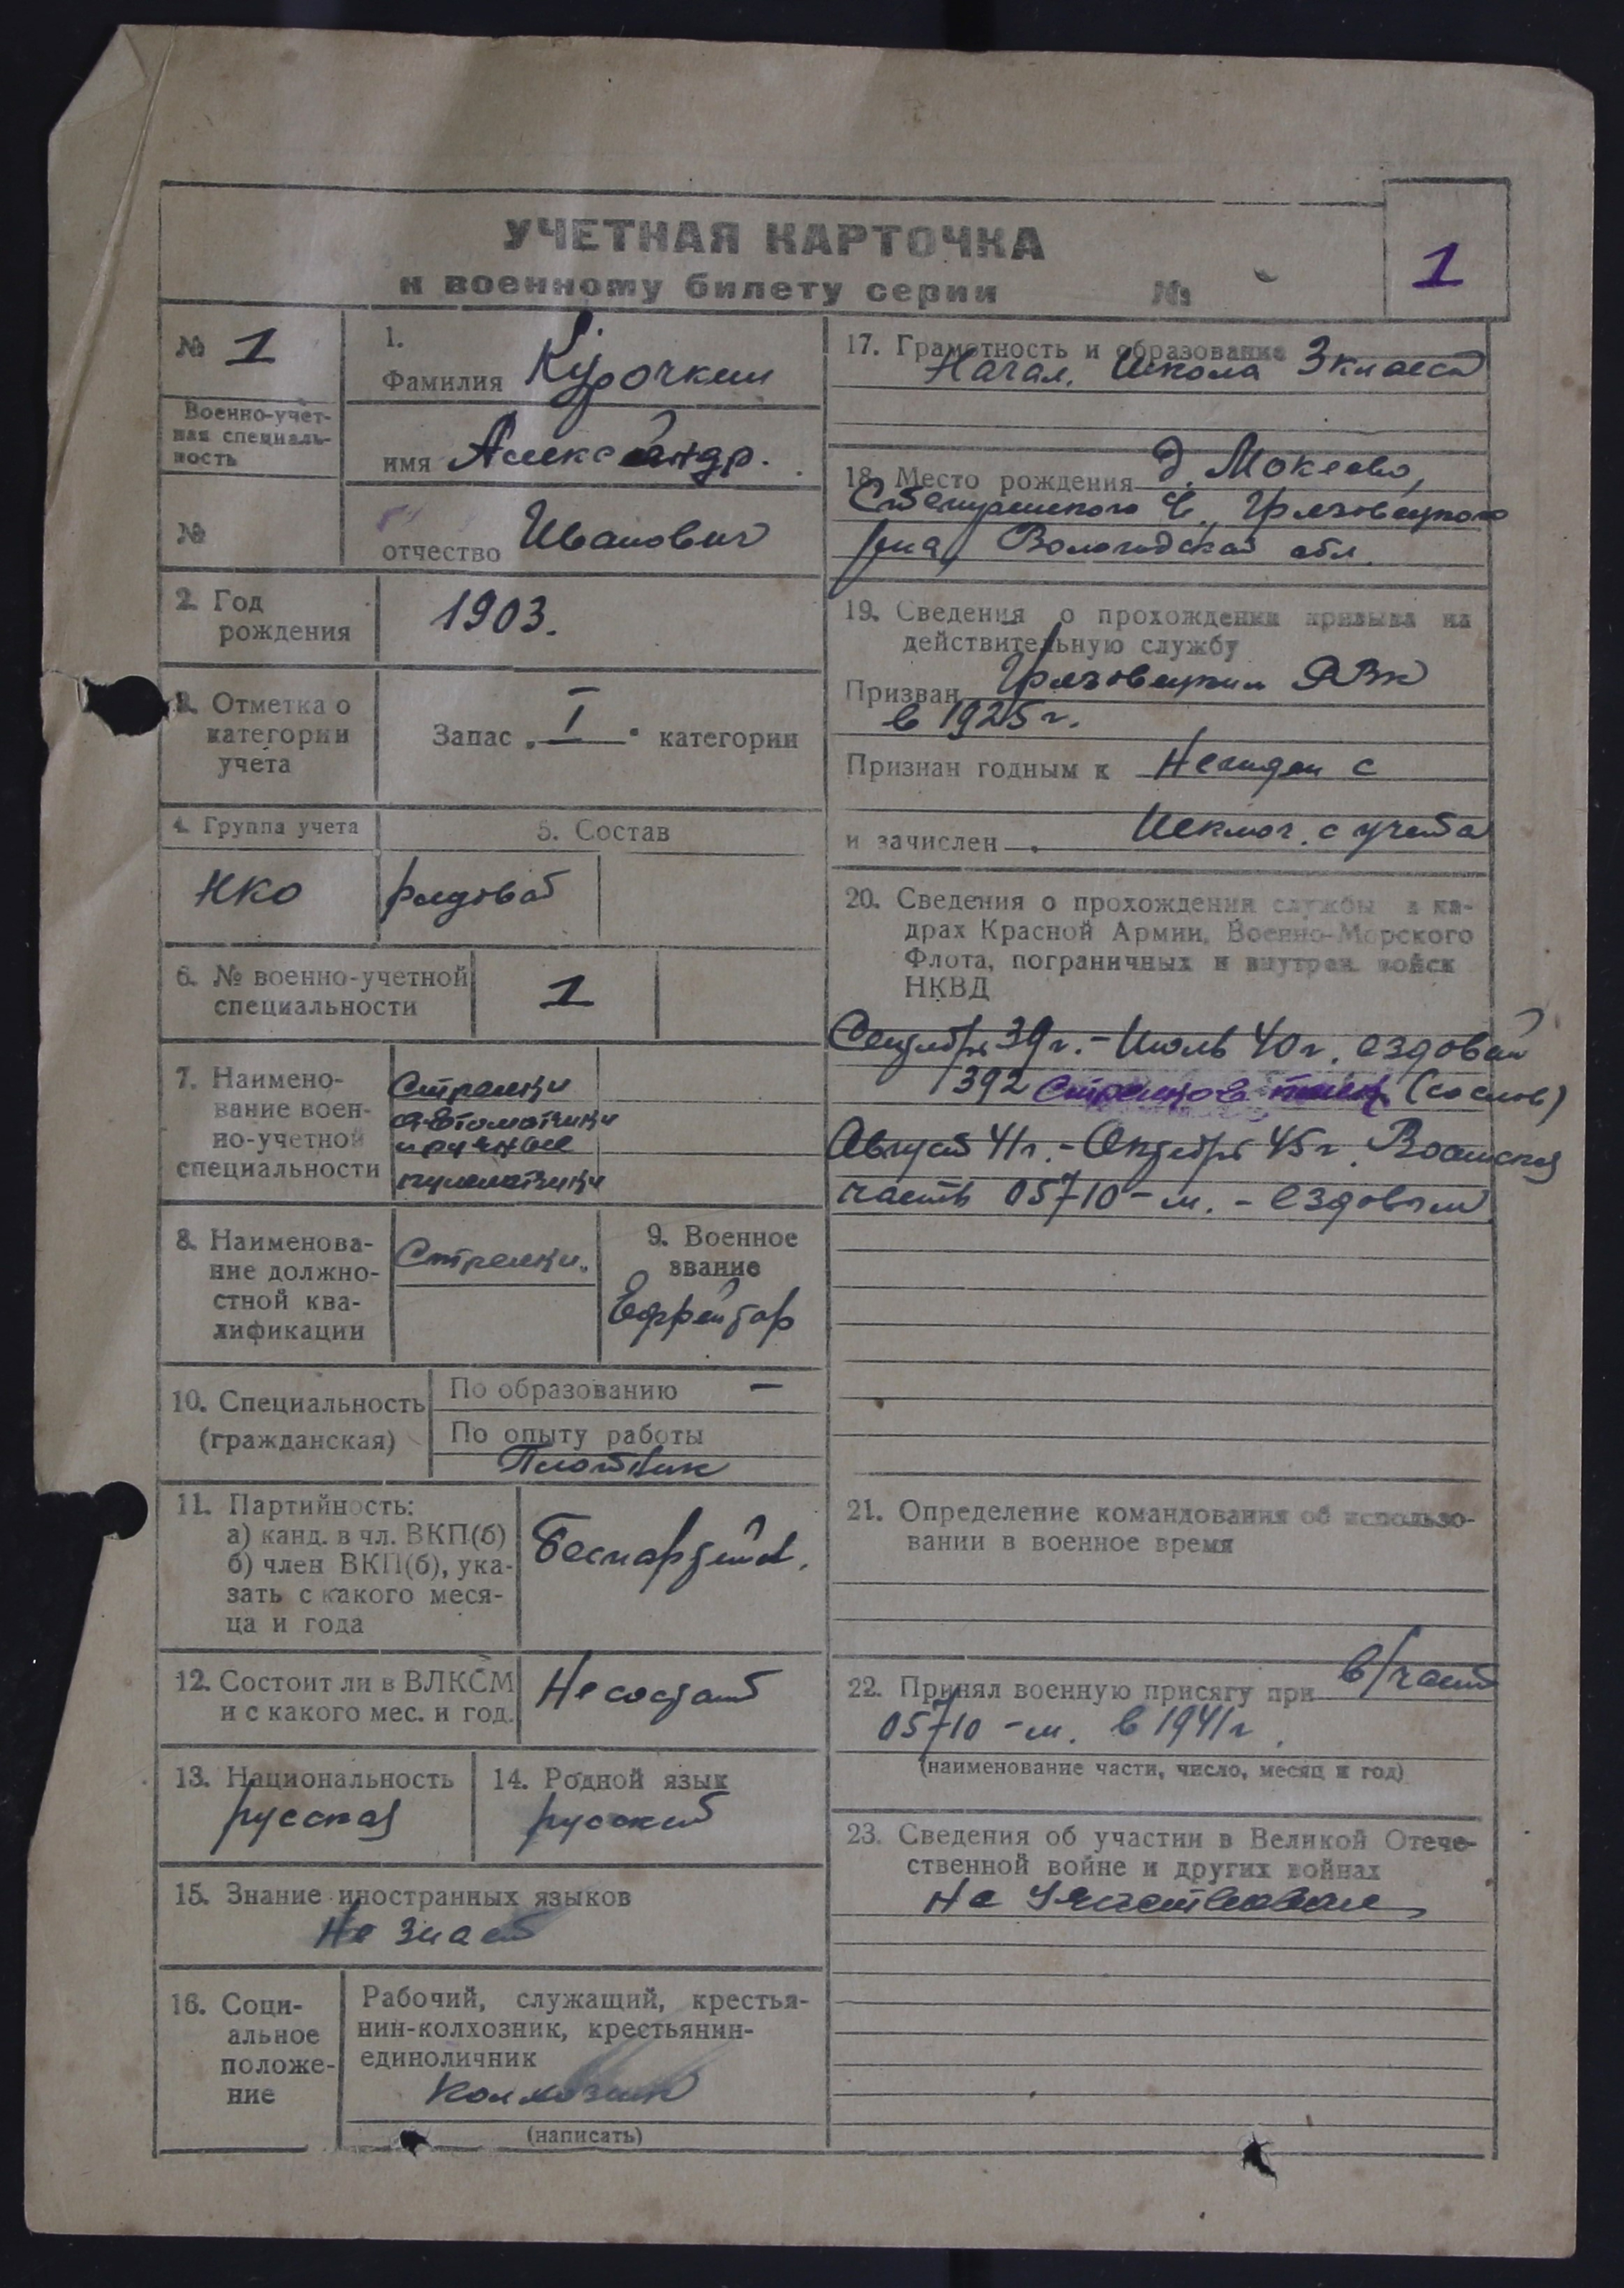 УЧЕТНАЯ КАРТОЧКА
к военному билету серии №
1
№ 1
Военно-учет-
ная специаль-
ность
№
1.
Фамилия Курочкин
имя Александр.
отчество Иванович
2. Год
рождения
1903.
3. Отметка о
категории
учета
Запас „I" категории
4. Группа учета
НКО
5. Состав
рядовой
6. № военно-учетной
специальности
1
7. Наимено-
вание воен-
но-учетной
специальности
Стрелки
автоматчики
и ручные
пулеметчики
8. Наименова-
ние должно-
стной ква-
лификации
Стрелки.
9. Военное
звание
Ефрейтор
10. Специальность
(гражданская)
По образованию —
По опыту работы
Плотник
11. Партийность:
а) канд. в чл. ВКП(б)
б) член ВКП(б), ука-
зать с какого меся-
ца и года
Беспартийн.
12. Состоит ли в ВЛКСМ
и с какого мес. и год.
Не состоит
13. Национальность
русская
14. Родной язык
русский
15. Знание иностранных языков
Не знает
16. Соци-
альное
положе-
ние
Рабочий, служащий, крестья-
нин-колхозник, крестьянин-
единоличник
колхозник
(написать)
17. Грамотность и образование 3 класса
Начал. Школа
18. Место рождения д. Мокеево,
с., Грязовецкого
р-на, Вологодской обл.
19. Сведения о прохождении призыва на
действительную службу
Призван Грязовецким РВК
в 1925 г.
Признан годным к Негоден с
и зачислен Исключ. с учета
20. Сведения о прохождении службы в ка-
драх Красной Армии, Военно-Морского
Флота, пограничных и внутрен. войск
НКВД
Сентябрь 39 г. - Июль 40 г. ездовой
392 Стрелкова полк (со слов)
Август 41 г. - Октябрь 45 г. Воинская
часть 05710-м. - ездовым
21. Определение командования об использо-
вании в военное время
22. Принял военную присягу при в/част
05710-м. в 1941 г.
(наименование части, число, месяц и год)
23. Сведения об участии в Великой Отече-
ственной войне и других войнах
Не Участвовал